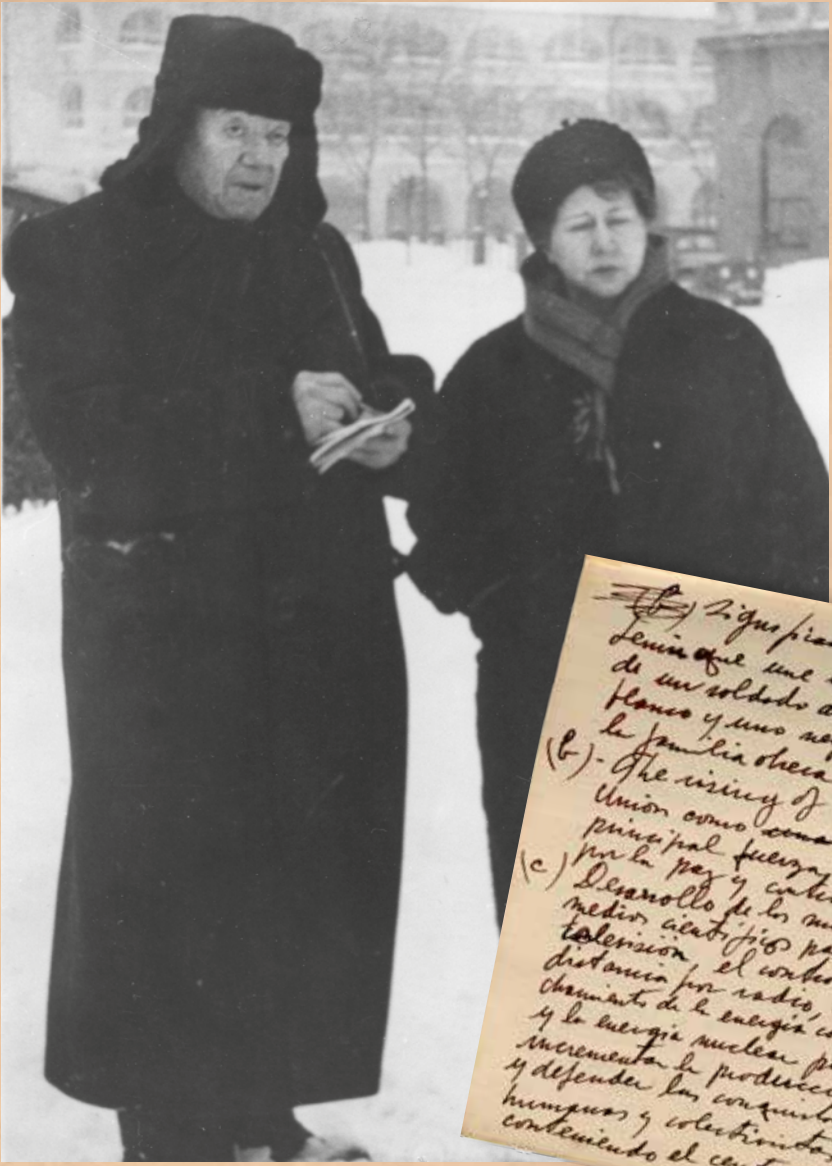 (b) Signific
Lenin que une
de un soldado
blanco y uno neg
la familia obrera
(b) - The rising of
Union como una
principal fuerza
por la paz y contr
(c) Desarrollo de los
medios científicos pa
televisión, el contro
distancia por radio,
chamiento de la energía co
y la energía nuclear p
incrementar la producci
y defender las conquista
humanas y colectivistas
conteniendo el